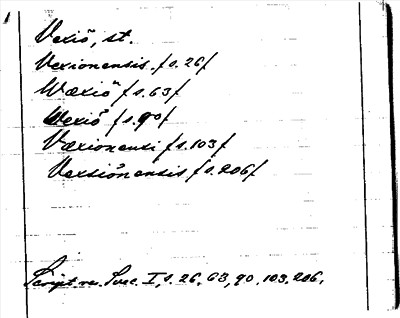 Vexiö, st.
Vexionensis /s. 26/
Wæxiö /s. 63/
Wexiö /s. 90/
Væxionensi /s. 103/
Vexsiönensis /s. 206/
Script. rer. Svec. I, s. 26, 63, 90, 103, 206.